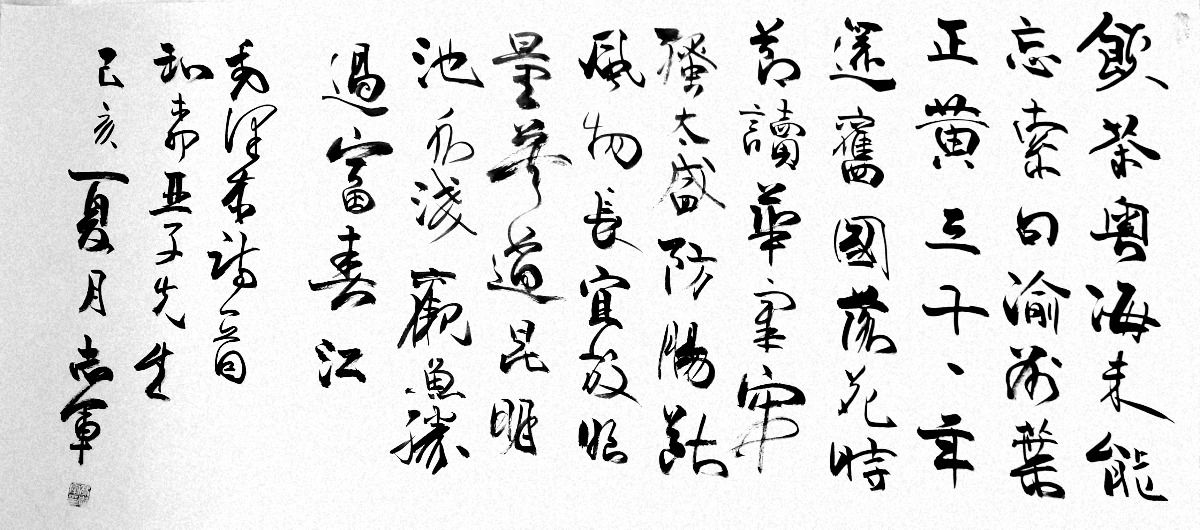 飲茶粵海未能
忘索句渝州葉
正黃三十一年
還舊國落花時
節讀華章牢
騷太盛防腸斷
風物長宜放眼
量莫道昆明
池水淺觀魚勝
過富春江
毛澤東詩一首
和柳亞子先生
己亥夏月志軍